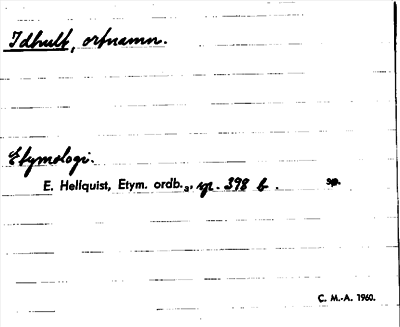 Idhult, ortnamn.
Etymologi.
E. Hellquist, Etym. ordb.3, sp. 398 b.
C. M.-A. 1960.